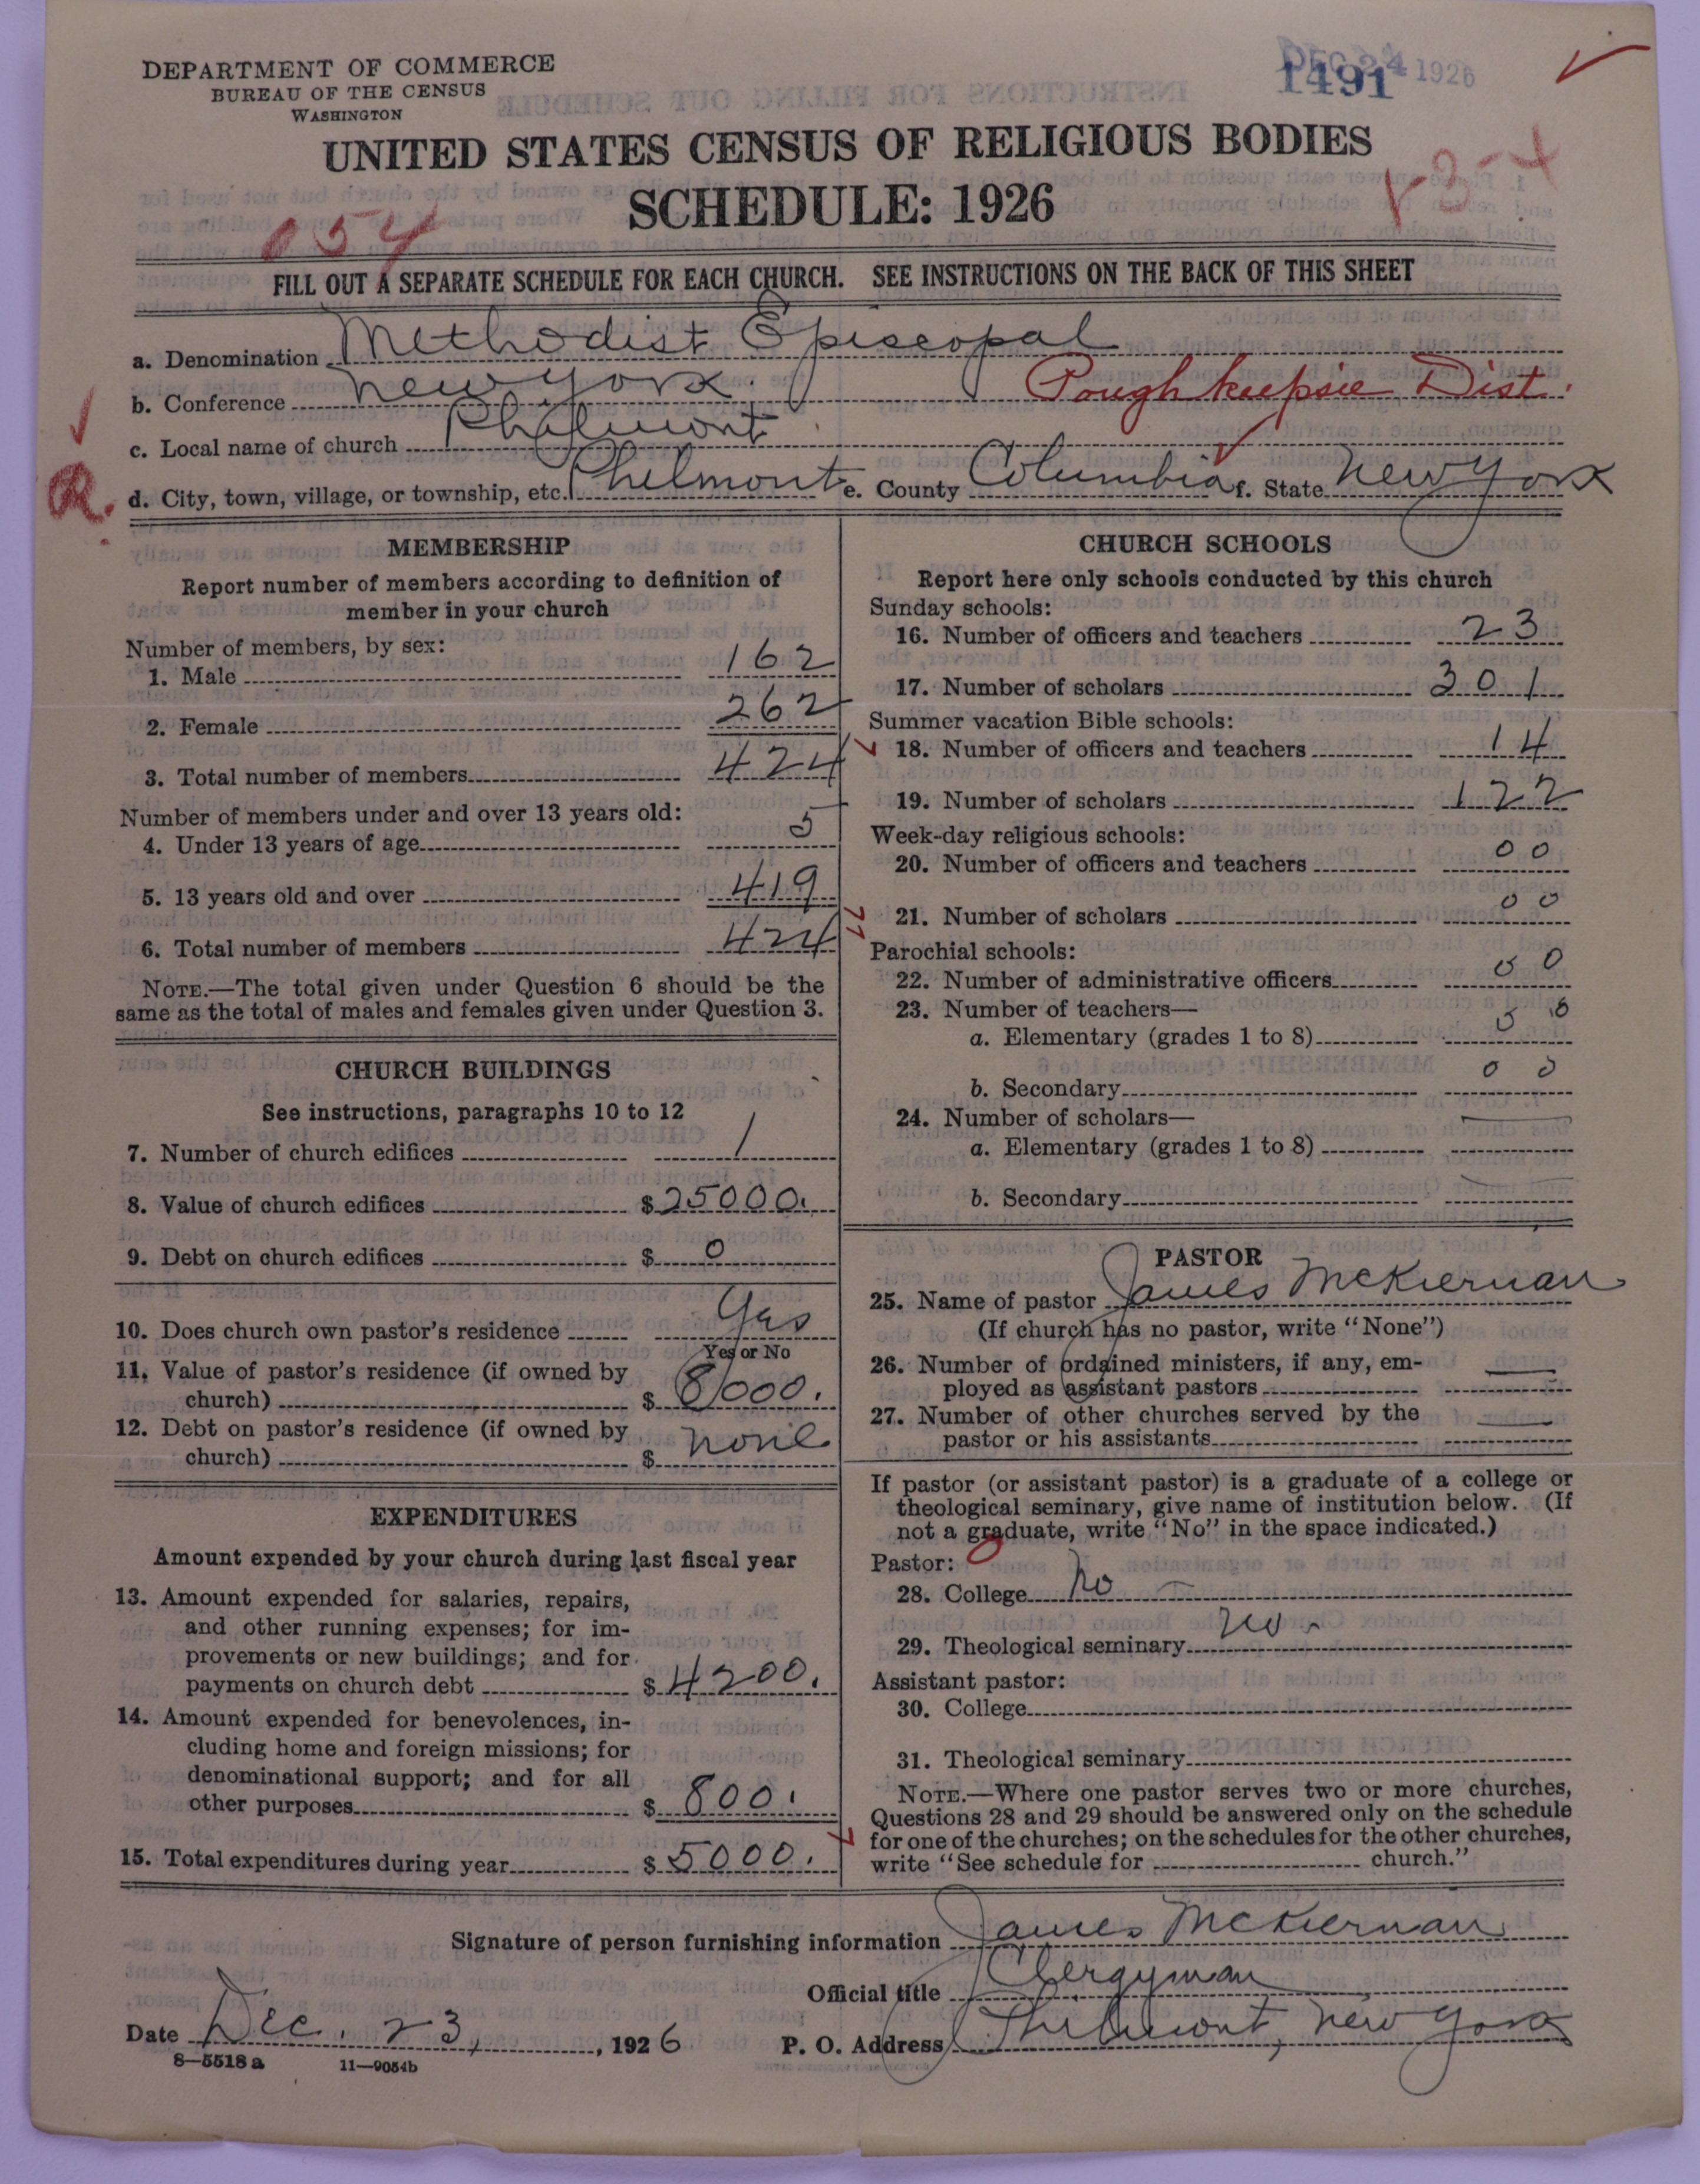 DEPARTMENT OF COMMERCE
BUREAU OF THE CENSUS
WASHINGTON
DEC 24 1926
1491
UNITED STATES CENSUS OF RELIGIOUS BODIES
SCHEDULE: 1926
054
FILL OUT A SEPARATE SCHEDULE FOR EACH CHURCH. SEE INSTRUCTIONS ON THE BACK OF THIS SHEET
a. Denomination Methodist Episcopal
b. Conference New York. Poughkeepsie Dist.
c. Local name of church Philmont
d. City, town, village, or township, etc. Philmont e. County Columbia f. State New York
MEMBERSHIP
Report number of members according to definition of
member in your church
Number of members, by sex:
1. Male 162
2. Female 262
3. Total number of members 424
Number of members under and over 13 years old:
4. Under 13 years of age 5
5. 13 years old and over 419
6. Total number of members 424
NOTE.—The total given under Question 6 should be the
same as the total of males and females given under Question 3.
CHURCH BUILDINGS
See instructions, paragraphs 10 to 12
7. Number of church edifices 1
8. Value of church edifices $25000.
9. Debt on church edifices $ 0
10. Does church own pastor's residence Yes
Yes or No
11. Value of pastor's residence (if owned by
church) $ 8000.
12. Debt on pastor's residence (if owned by
church) $ none
EXPENDITURES
Amount expended by your church during last fiscal year
13. Amount expended for salaries, repairs,
and other running expenses; for im-
provements or new buildings; and for
payments on church debt $ 4200.
14. Amount expended for benevolences, in-
cluding home and foreign missions; for
denominational support; and for all
other purposes $ 800.
15. Total expenditures during year $ 5000.
CHURCH SCHOOLS
Report here only schools conducted by this church
Sunday schools:
16. Number of officers and teachers 23
17. Number of scholars 301
Summer vacation Bible schools:
18. Number of officers and teachers 14
19. Number of scholars 122
Week-day religious schools:
20. Number of officers and teachers 00
21. Number of scholars 00
Parochial schools:
22. Number of administrative officers 00
23. Number of teachers—
a. Elementary (grades 1 to 8) 00
b. Secondary 00
24. Number of scholars—
a. Elementary (grades 1 to 8) —
b. Secondary —
PASTOR
25. Name of pastor James McKiernan
(If church has no pastor, write "None")
26. Number of ordained ministers, if any, em-
ployed as assistant pastors —
27. Number of other churches served by the
pastor or his assistants —
If pastor (or assistant pastor) is a graduate of a college or
theological seminary, give name of institution below. (If
not a graduate, write "No" in the space indicated.)
Pastor:
28. College No —
29. Theological seminary No -
Assistant pastor:
30. College
31. Theological seminary
NOTE.—Where one pastor serves two or more churches,
Questions 28 and 29 should be answered only on the schedule
for one of the churches; on the schedules for the other churches,
write "See schedule for church."
Signature of person furnishing information James McKiernan
Official title Clergyman
Date Dec. 23, , 1926 P. O. Address Philmont, New York
8—5518 a 11—9054b